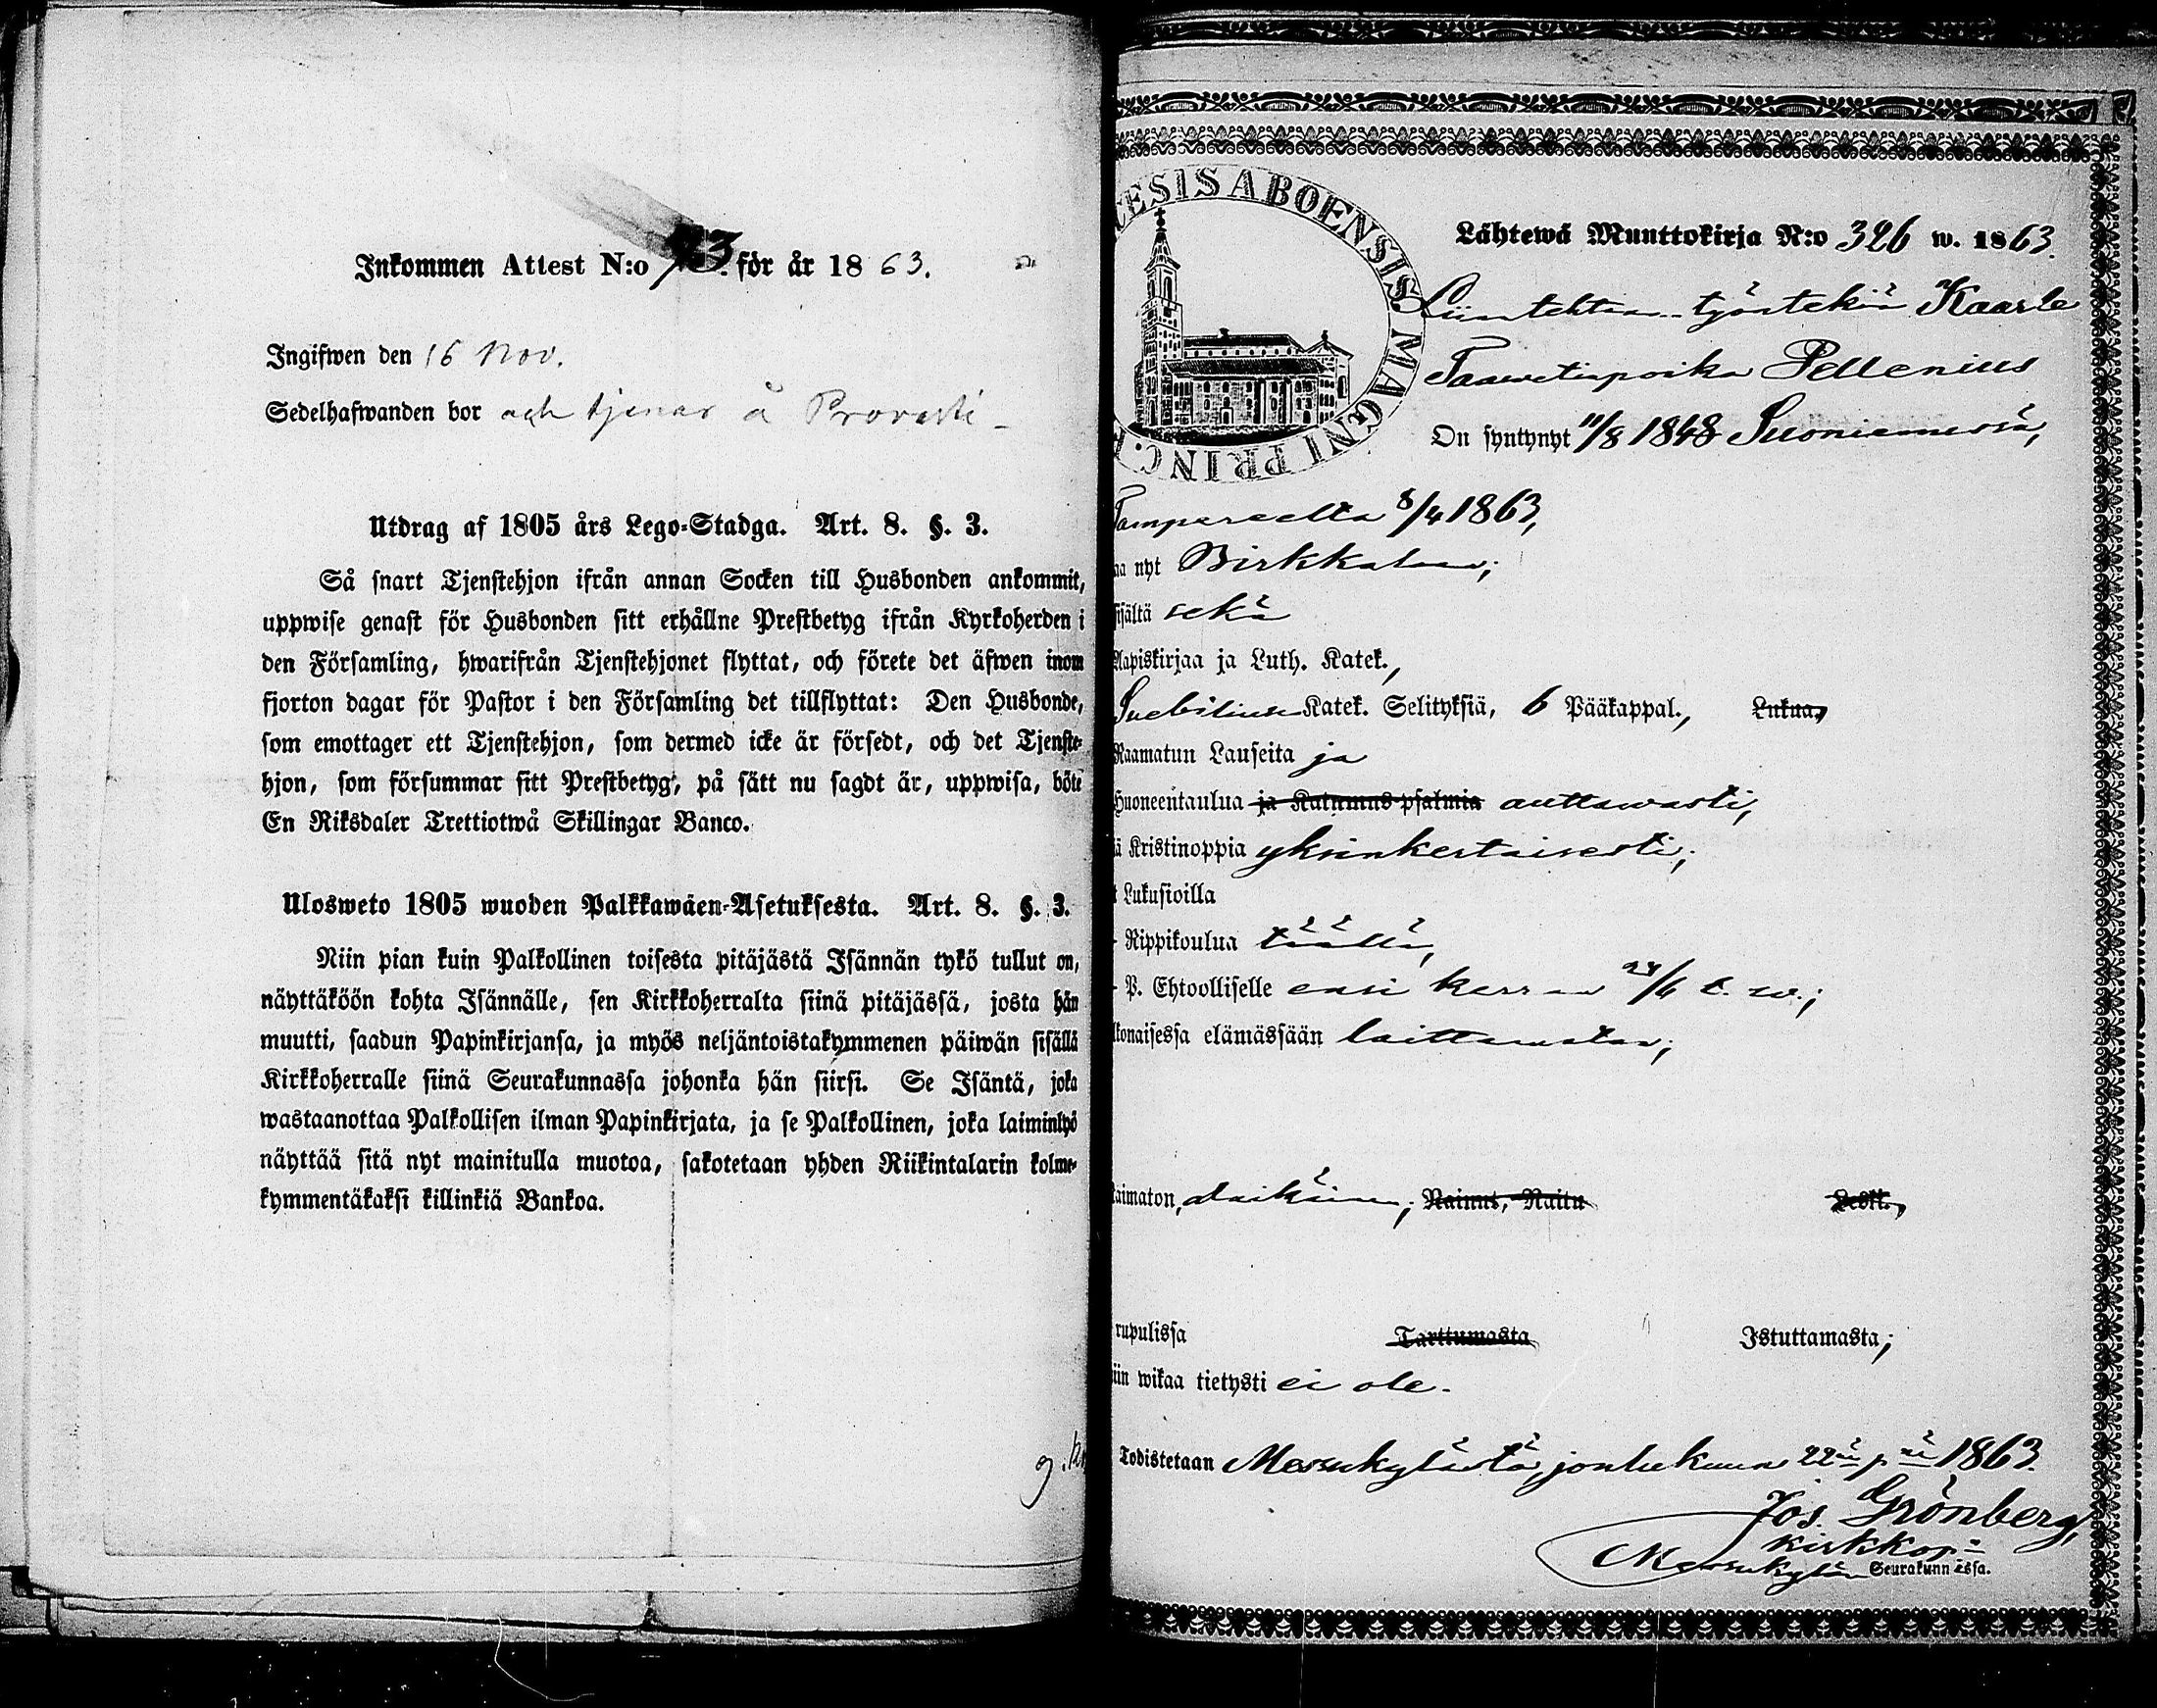 Inkommen Attest N:o 73. för år 1863.
Ingifwen den 16 Nov.
Sedelhafwanden bor och tjenar å Provasti
Utdrag af 1805 års Lego-Stadga. Art. 8. §. 3.
Så snart Tjenstehjon ifrån annan Socken till Husbonden ankommit,
uppwise genast för Husbonden sitt erhållne Prestbetyg ifrån Kyrkoherden i
den Församling, hwarifrån Tjenstehjonet flyttat, och förete det äfwen inom
fjorton dagar för Pastor i den Församling det tillflyttat: Den Husbonde,
som emottager ett Tjenstehjon, som dermed icke är försedt, och det Tjenste-
hjon, som försummar sitt Prestbetyg, på sätt nu sagdt är, uppwisa, böte
En Riksdaler Trettiotwå Skillingar Banco.
Ulosweto 1805 wuoden Palkkawäen-Asetuksesta. Art. 8. §. 3.
Niin pian kuin Palkollinen toisesta pitäjästä Isännän tykö tullut on,
näyttäköön kohta Isännälle, sen Kirkkoherralta siinä pitäjässä, josta hän
muutti, saadun Papinkirjansa, ja myös neljäntoistakymmenen päiwän sisällä
Kirkkoherralle siinä Seurakunnassa johonka hän siirsi. Se Isäntä, joka
wastaanottaa Palkollisen ilman Papinkirjata, ja se Palkollinen, joka laiminlyö
näyttää sitä nyt mainitulla muotoa, sakotetaan yhden Riikintalarin kolme-
kymmentäkaksi killinkiä Bankoa.
CESIS ABOENSIS MAGNI PRINC.
Lähtewä Muuttokirja N:o 326 w. 1863.
työntekiä Kaarle
Taawetinpoika Pellenius
On syntynyt 11/8 1848 Suoniemessä,
Tampereelta 8/4 1863,
aa nyt Birkkalaan;
sisältä sekä
Aapiskirjaa ja Luth. Katek.,
Suebiliuse Katek. Selityksiä, 6 Pääkappal., Lukua,
Raamatun Lauseita ja
Huoneentaulua ja Katumus-psalmia auttawasti,
ä Kristinoppia yksinkertaisesti;
t Lukusioilla
Rippikoulua täällä,
P. Ehtoolliselle ensi kerran 24/6 t. w.;
lkonaisessa elämässään laittamatoin;
aimaton, alaikäinen; Nainut, Naitu Leski.,
rupulissa Tarttumasta Istuttamasta;
iin wikaa tietysti ei ole.
Todistetaan Messukylästä, joulukuun 22 p 1863.
Jos. Grönberg,
kirkkoh
Messukylän Seurakunnassa.